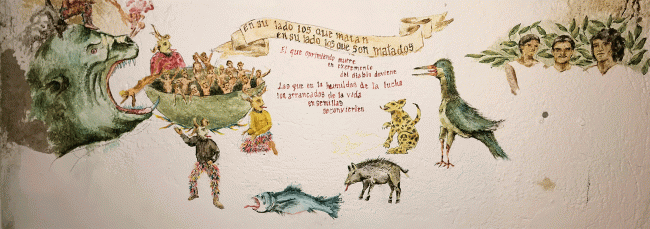 en su lado los que matan
en su lado los que son matados
El que oprimiendo muere
en excremento
del diablo deviene
Los que en la humildad de la lucha
son arrancados de la vida
en semillas
se convierten